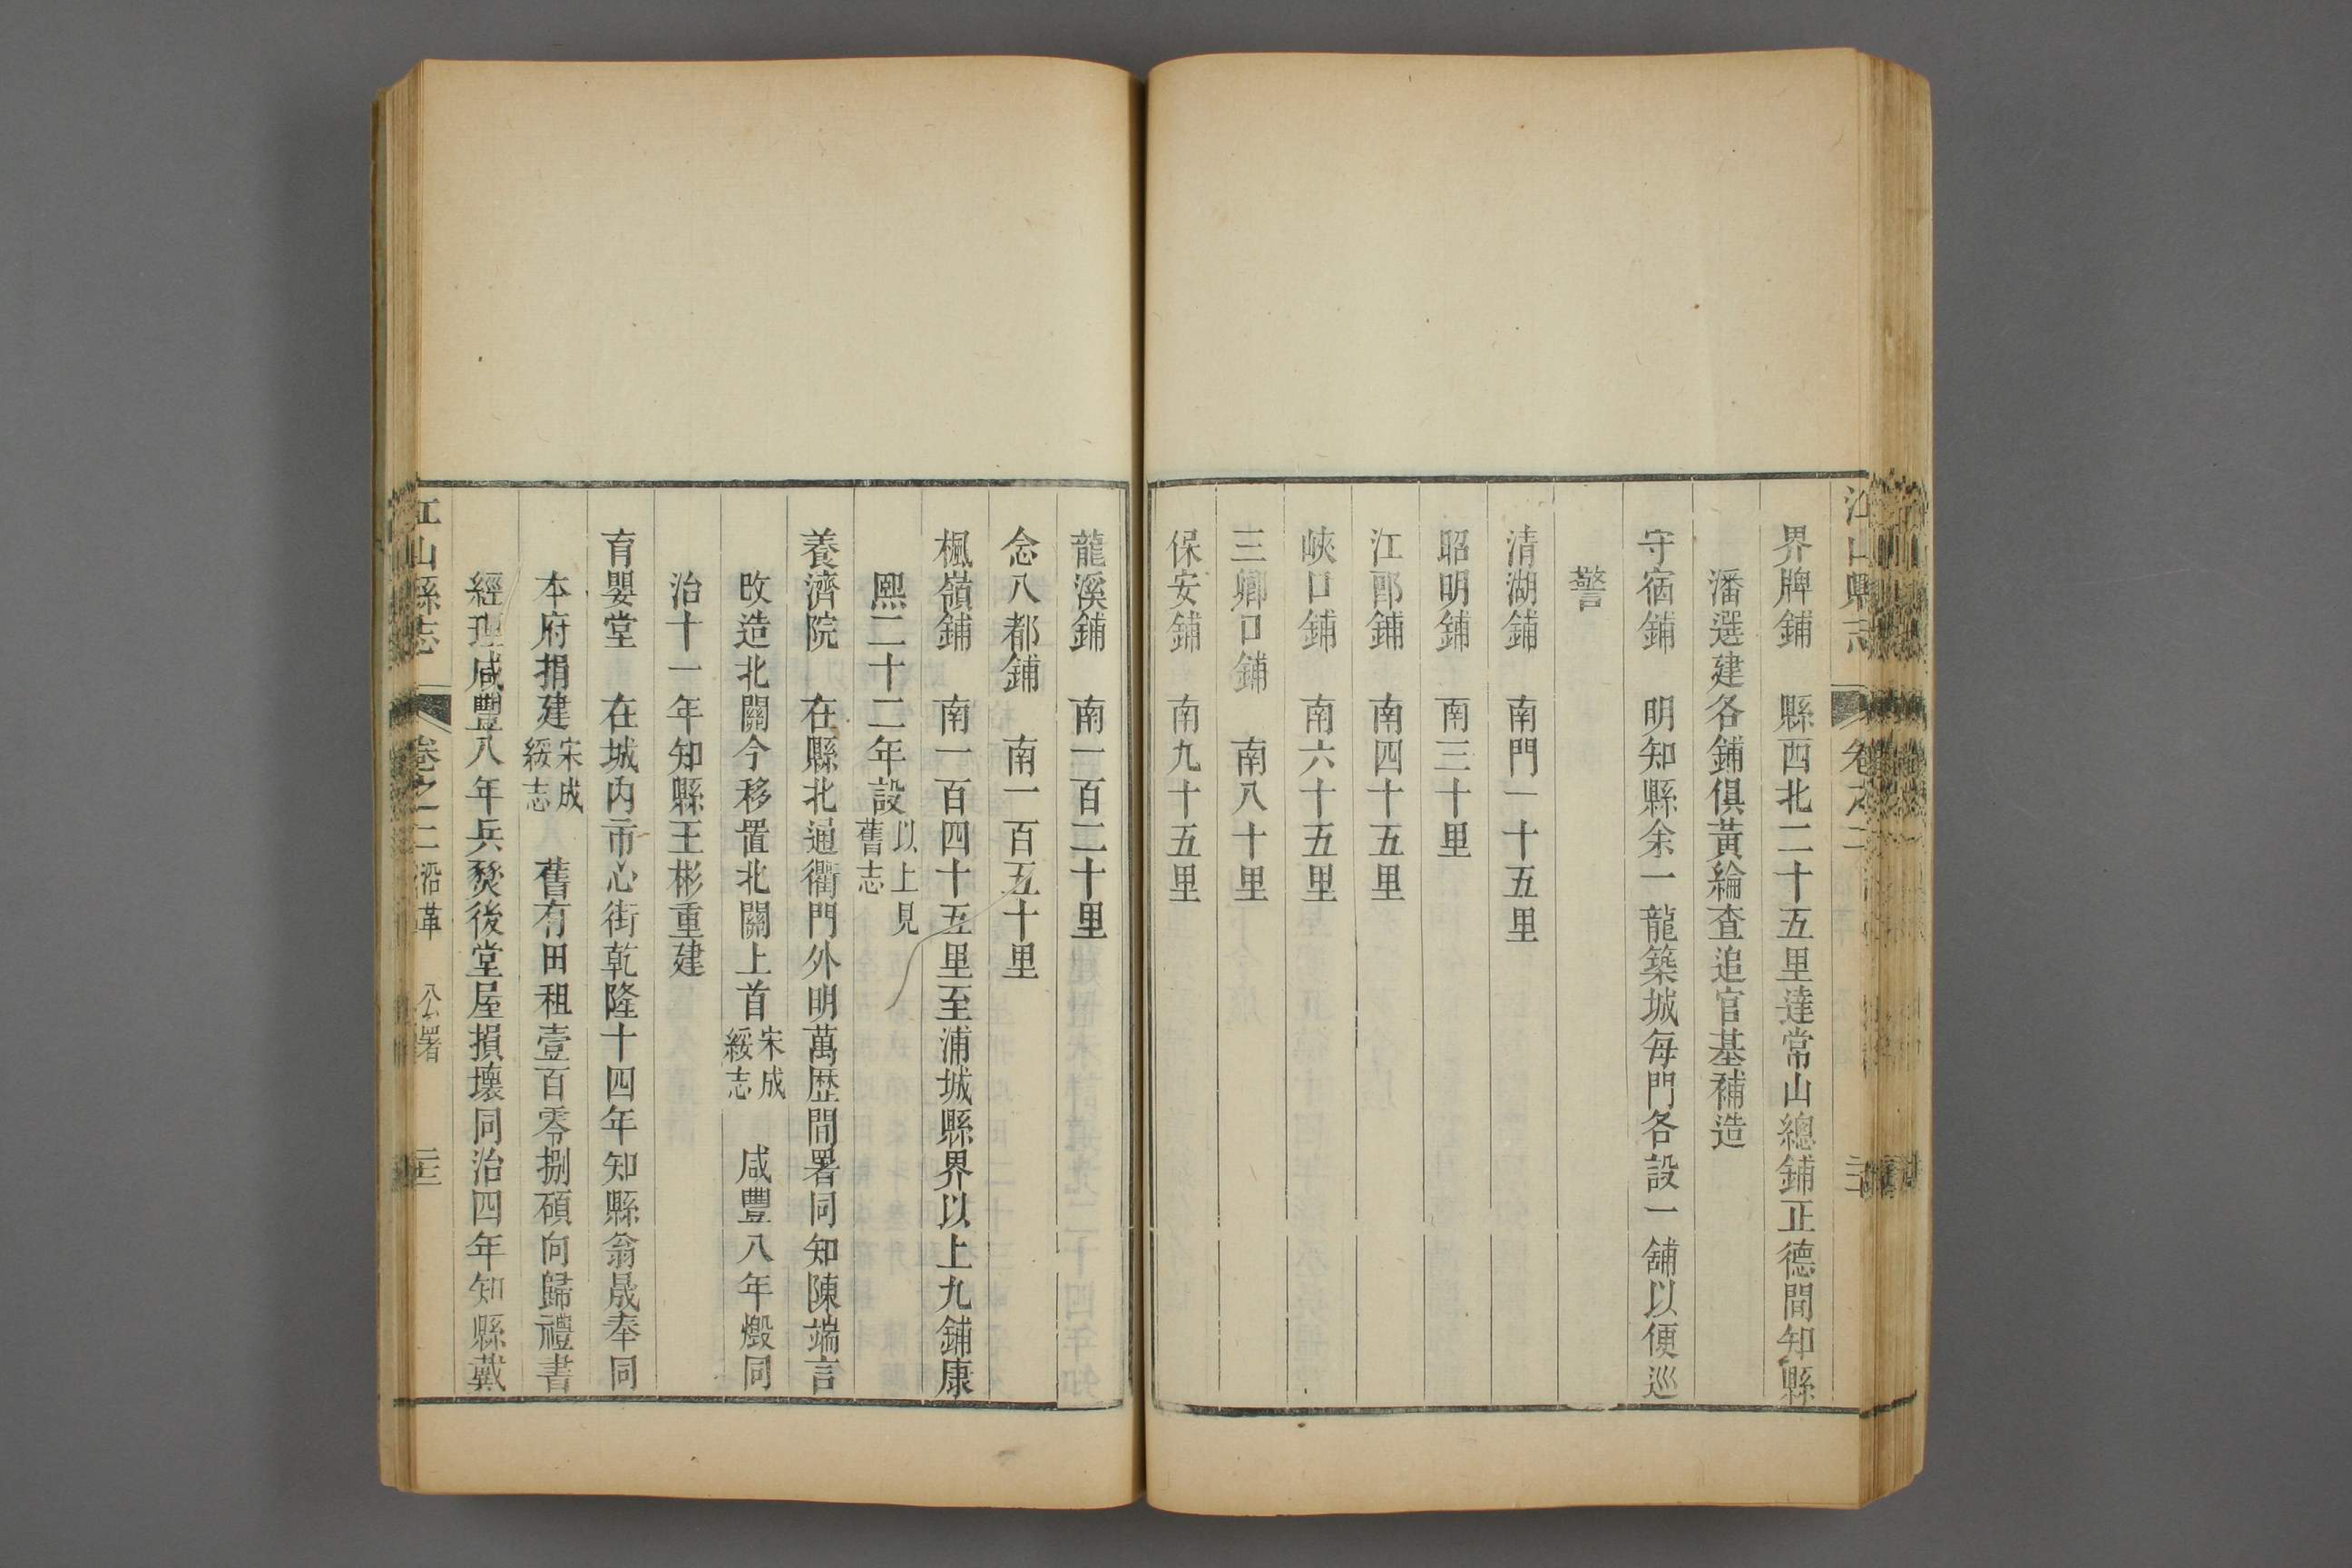 界牌鋪　縣西北二十五里達常山總鋪正德間知縣
潘選建各鋪俱黃綸查追官基補造
守宿鋪　明知縣余一龍築城每門各設一舖以便巡
警
清湖鋪　南門一十五里
昭明鋪　南三十里
江郎鋪　南四十五里
峽口鋪　南六十五里
三卿口鋪　南八十里
保安鋪　南九十五里
龍溪鋪　南一百二十里
念八都鋪　南一百五十里
楓嶺鋪　南一百四十五里至浦城縣界以上九鋪康
熙二十二年設以上見舊志
養濟院　在縣北通衢門外明萬歴間署同知陳端言
改造北關今移置北關上首宋成綏志　咸豐八年燬同
治十一年知縣王彬重建
育嬰堂　在城内市心街乾隆十四年知縣翁晟奉同
本府捐建宋成綏志　舊有田租壹百零捌碩向歸禮書
經理咸豐八年兵燹後堂屋損壞同治四年知縣戴
江山縣志　卷之二 沿革　公署　二三